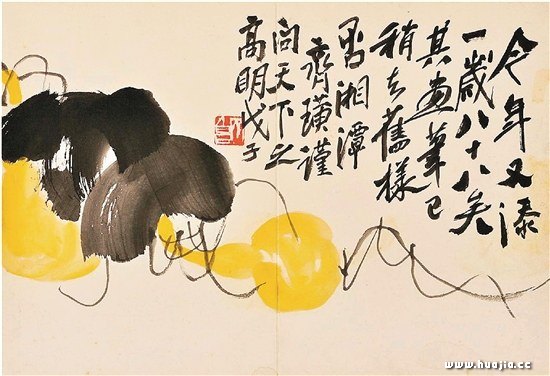 今年又添
一歲八十八矣
其畫筆已
稍去舊樣
否湘潭
齊璜謹
問天下之
高明戊子
www.huajia.cc